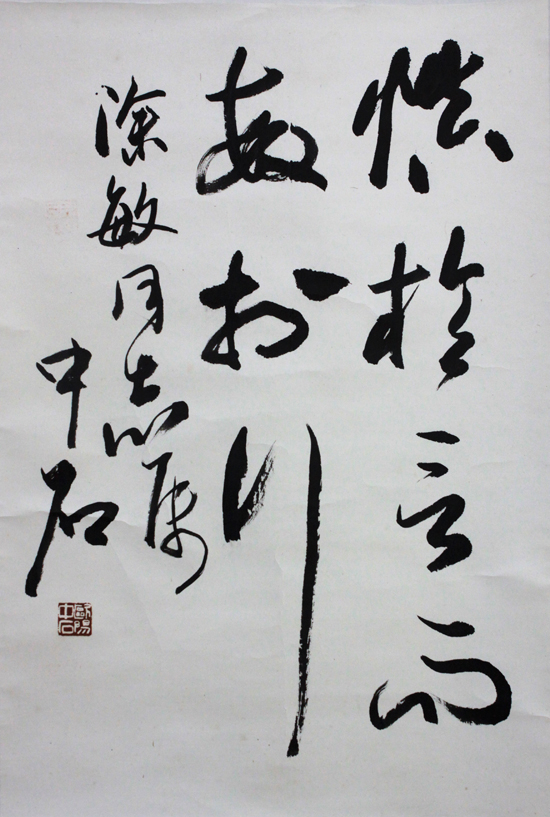 慎於言而
敏於行
徐敏同志属
中石
歐陽中石